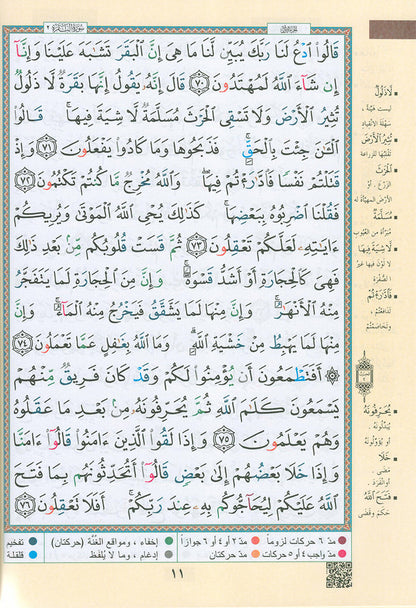 سورة البقرة ٢
قَالُوا۟ ٱدْعُ لَنَا رَبَّكَ يُبَيِّن لَّنَا مَا هِىَ إِنَّ ٱلْبَقَرَ تَشَٰبَهَ عَلَيْنَا وَإِنَّآ
إِن شَآءَ ٱللَّهُ لَمُهْتَدُونَ ﴿٧٠﴾ قَالَ إِنَّهُۥ يَقُولُ إِنَّهَا بَقَرَةٌ لَّا ذَلُولٌ
تُثِيرُ ٱلْأَرْضَ وَلَا تَسْقِى ٱلْحَرْثَ مُسَلَّمَةٌ لَّا شِيَةَ فِيهَا ۚ قَالُوا۟
ٱلْـَٰٔنَ جِئْتَ بِٱلْحَقِّ ۚ فَذَبَحُوهَا وَمَا كَادُوا۟ يَفْعَلُونَ ﴿٧١﴾ وَإِذْ
قَتَلْتُمْ نَفْسًا فَٱدَّٰرَْٰٔتُمْ فِيهَا ۖ وَٱللَّهُ مُخْرِجٌ مَّا كُنتُمْ تَكْتُمُونَ ﴿٧٢﴾
فَقُلْنَا ٱضْرِبُوهُ بِبَعْضِهَا ۚ كَذَٰلِكَ يُحْىِ ٱللَّهُ ٱلْمَوْتَىٰ وَيُرِيكُمْ
ءَايَٰتِهِۦ لَعَلَّكُمْ تَعْقِلُونَ ﴿٧٣﴾ ثُمَّ قَسَتْ قُلُوبُكُم مِّنۢ بَعْدِ ذَٰلِكَ
فَهِىَ كَٱلْحِجَارَةِ أَوْ أَشَدُّ قَسْوَةً ۚ وَإِنَّ مِنَ ٱلْحِجَارَةِ لَمَا يَتَفَجَّرُ
مِنْهُ ٱلْأَنْهَٰرُ ۚ وَإِنَّ مِنْهَا لَمَا يَشَّقَّقُ فَيَخْرُجُ مِنْهُ ٱلْمَآءُ ۚ وَإِنَّ
مِنْهَا لَمَا يَهْبِطُ مِنْ خَشْيَةِ ٱللَّهِ ۗ وَمَا ٱللَّهُ بِغَٰفِلٍ عَمَّا تَعْمَلُونَ ﴿٧٤﴾
۞ أَفَتَطْمَعُونَ أَن يُؤْمِنُوا۟ لَكُمْ وَقَدْ كَانَ فَرِيقٌ مِّنْهُمْ
يَسْمَعُونَ كَلَٰمَ ٱللَّهِ ثُمَّ يُحَرِّفُونَهُۥ مِنۢ بَعْدِ مَا عَقَلُوهُ
وَهُمْ يَعْلَمُونَ ﴿٧٥﴾ وَإِذَا لَقُوا۟ ٱلَّذِينَ ءَامَنُوا۟ قَالُوٓا۟ ءَامَنَّا
وَإِذَا خَلَا بَعْضُهُمْ إِلَىٰ بَعْضٍ قَالُوٓا۟ أَتُحَدِّثُونَهُم بِمَا فَتَحَ
ٱللَّهُ عَلَيْكُمْ لِيُحَآجُّوكُم بِهِۦ عِندَ رَبِّكُمْ ۚ أَفَلَا تَعْقِلُونَ ﴿٧٦﴾
لَا ذَلُولٌ
ليست هيّنة،
سهلة الانقياد
تُثِيرُ الْأَرْضَ
تقلبها للزراعة
الْحَرْثَ
الزرع، أو
الأرض المهيأة له
مُسَلَّمَةٌ
مبرّأة من العيوب
لَا شِيَةَ فِيهَا
لا لون فيها غير
الصُّفرة
فَادَّارَأْتُمْ
تدافعتم،
وتخاصمتم
يُحَرِّفُونَهُ
يبدّلونه،
أو يؤوّلونه
خَلَا
مضى،
أو انفرد
فَتَحَ اللَّهُ
حكم وقضى
مدّ ٦ حركات لزوماً ● مدّ ٢ أو ٤ أو ٦ جوازاً ● إخفاء، ومواقع الغُنَّة (حركتان) ● تفخيم
مدّ واجب ٤ أو ٥ حركات ● مدّ حركتان ● إدغام، وما لا يُلفظ ● قلقلة
١١